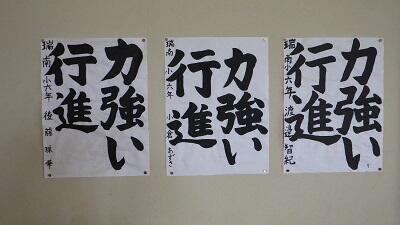 力強い
行進
瑞南小六年 後藤 珠華
力強い
行進
瑞南小六年 小倉あずさ
力強い
行進
瑞南小六年 渡邉智紀